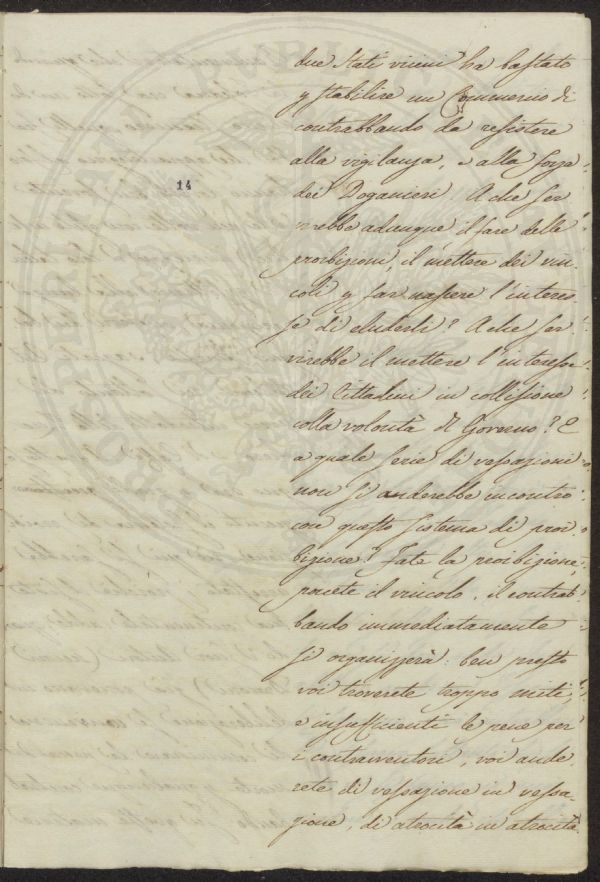 due Stati vicini ha bastato
p stabilire un Commercio di
contrabbando da resistere
alla vigilanza, e alla forza
14
dei Doganieri. A che ser
virebbe adunque il fare delle
proibizioni, il mettere dei vin-
coli p far nascere l'interes-
se di eluderli? A che ser
virebbe il mettere l'interesse
dei Cittadini in collisione
colla volontà di Governo? E
a quale serie di vessazioni
non si anderebbe incontro
con questo sistema di proi
bizione? Fate la proibizione
ponete il vincolo, il contrab-
bando immediatamente
si organizzerà: ben presto
voi troverete troppo miti,
e insufficienti le pene per
i contravventori, voi ande
rete di vessazione in vessa-
zione, di atrocità in atrocità.